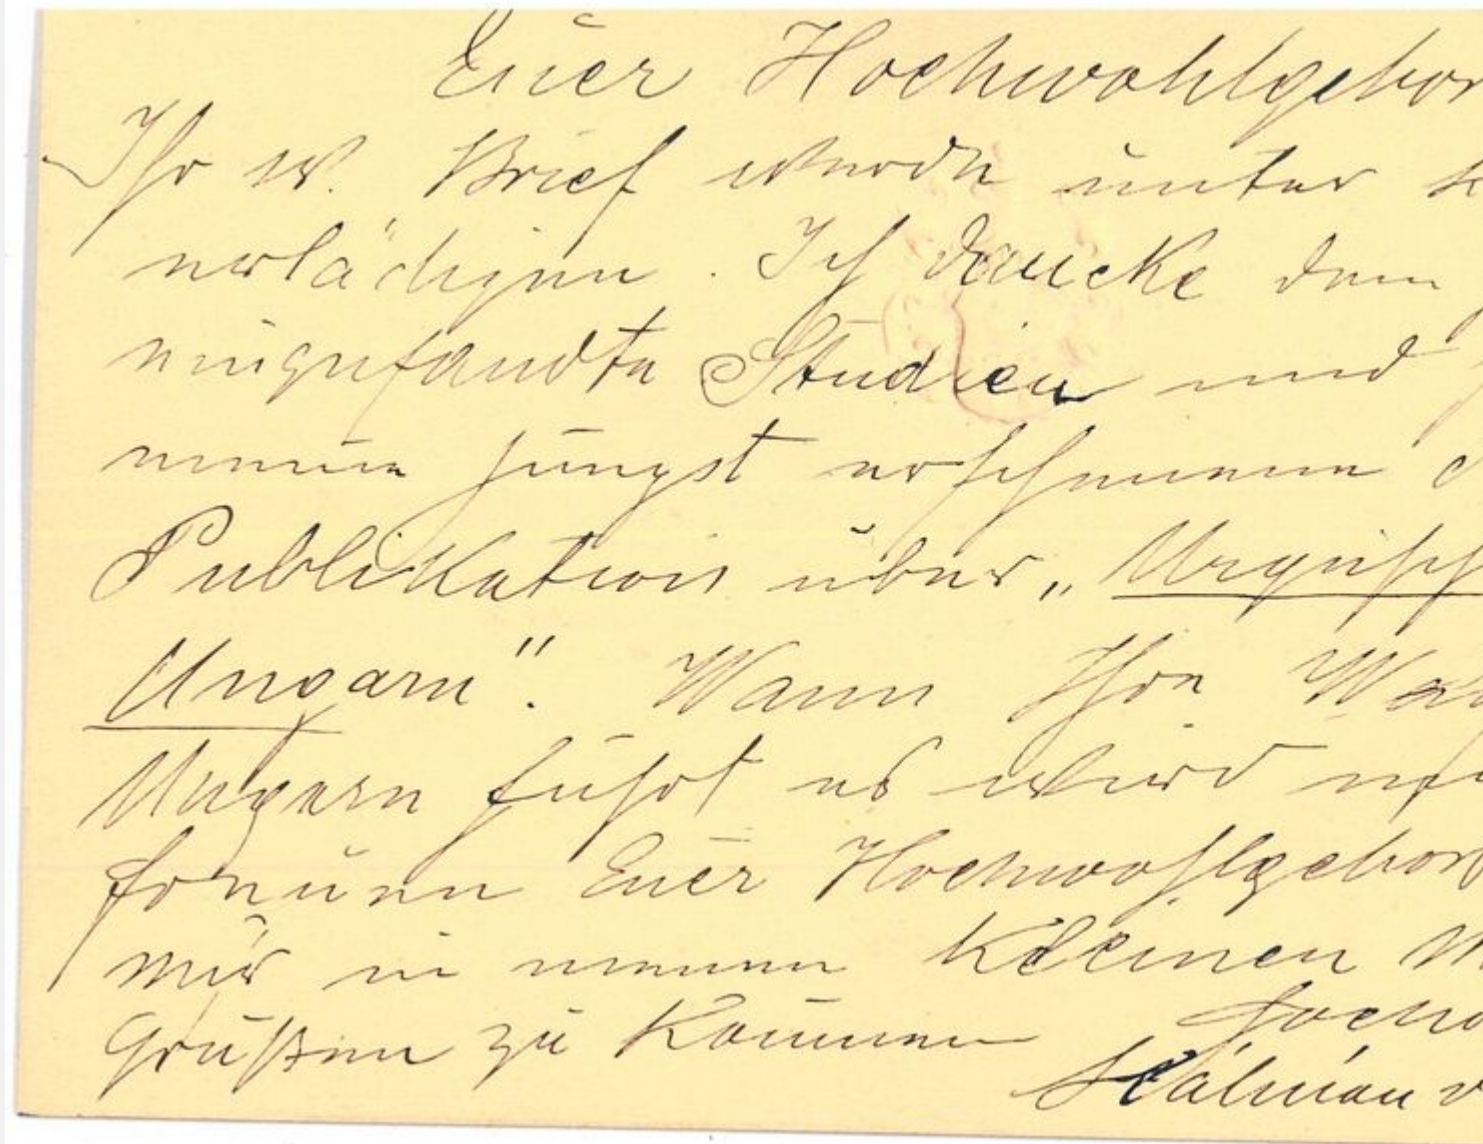 Euer Hochwohlgebor
Ihr w. Brief wurde unter
erlädigen. Ich dancke dem
eingesandte Studien und
meine jüngst erschienene
Publikation über „Urgesch
Ungarn“. Wann Ihre
Ungarn führt es wird
freuen Euer Hochwohlgebor
mir in meinen kleinen M
Grüßen zu kommen
Kálmán